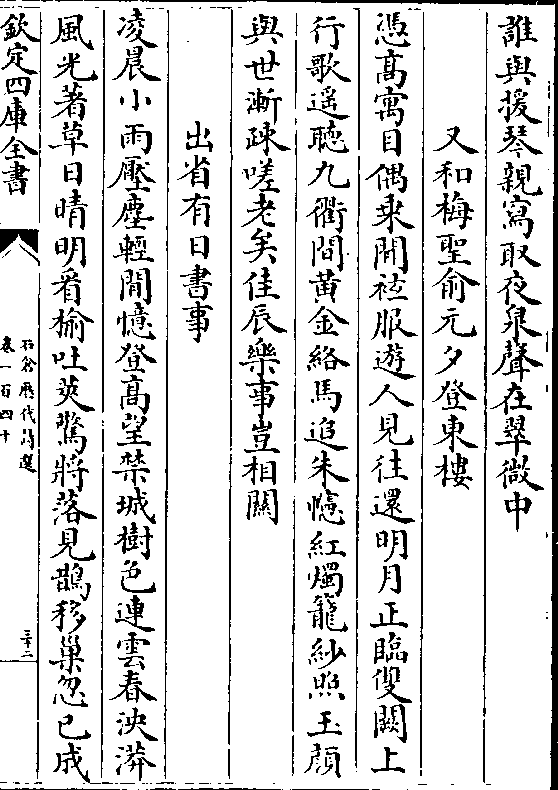 誰與援琴親寫取夜泉聲在翠微中
又和梅聖俞元夕登東樓
憑高寓目偶乗閒袨服遊人見往還明月正臨雙闕上
行歌遥聴九衢間黄金絡馬追朱幰紅燭籠紗照玉顔
與世漸疎嗟老矣佳辰樂事豈相關
出省有日書事
凌晨小雨壓塵輕閒憶登高望禁城樹色連雲春泱漭
風光著草日晴明看榆吐莢驚將落見鵲移巢忽已成
欽定四庫全書
石倉歴代詩選
卷一百四十
三十二